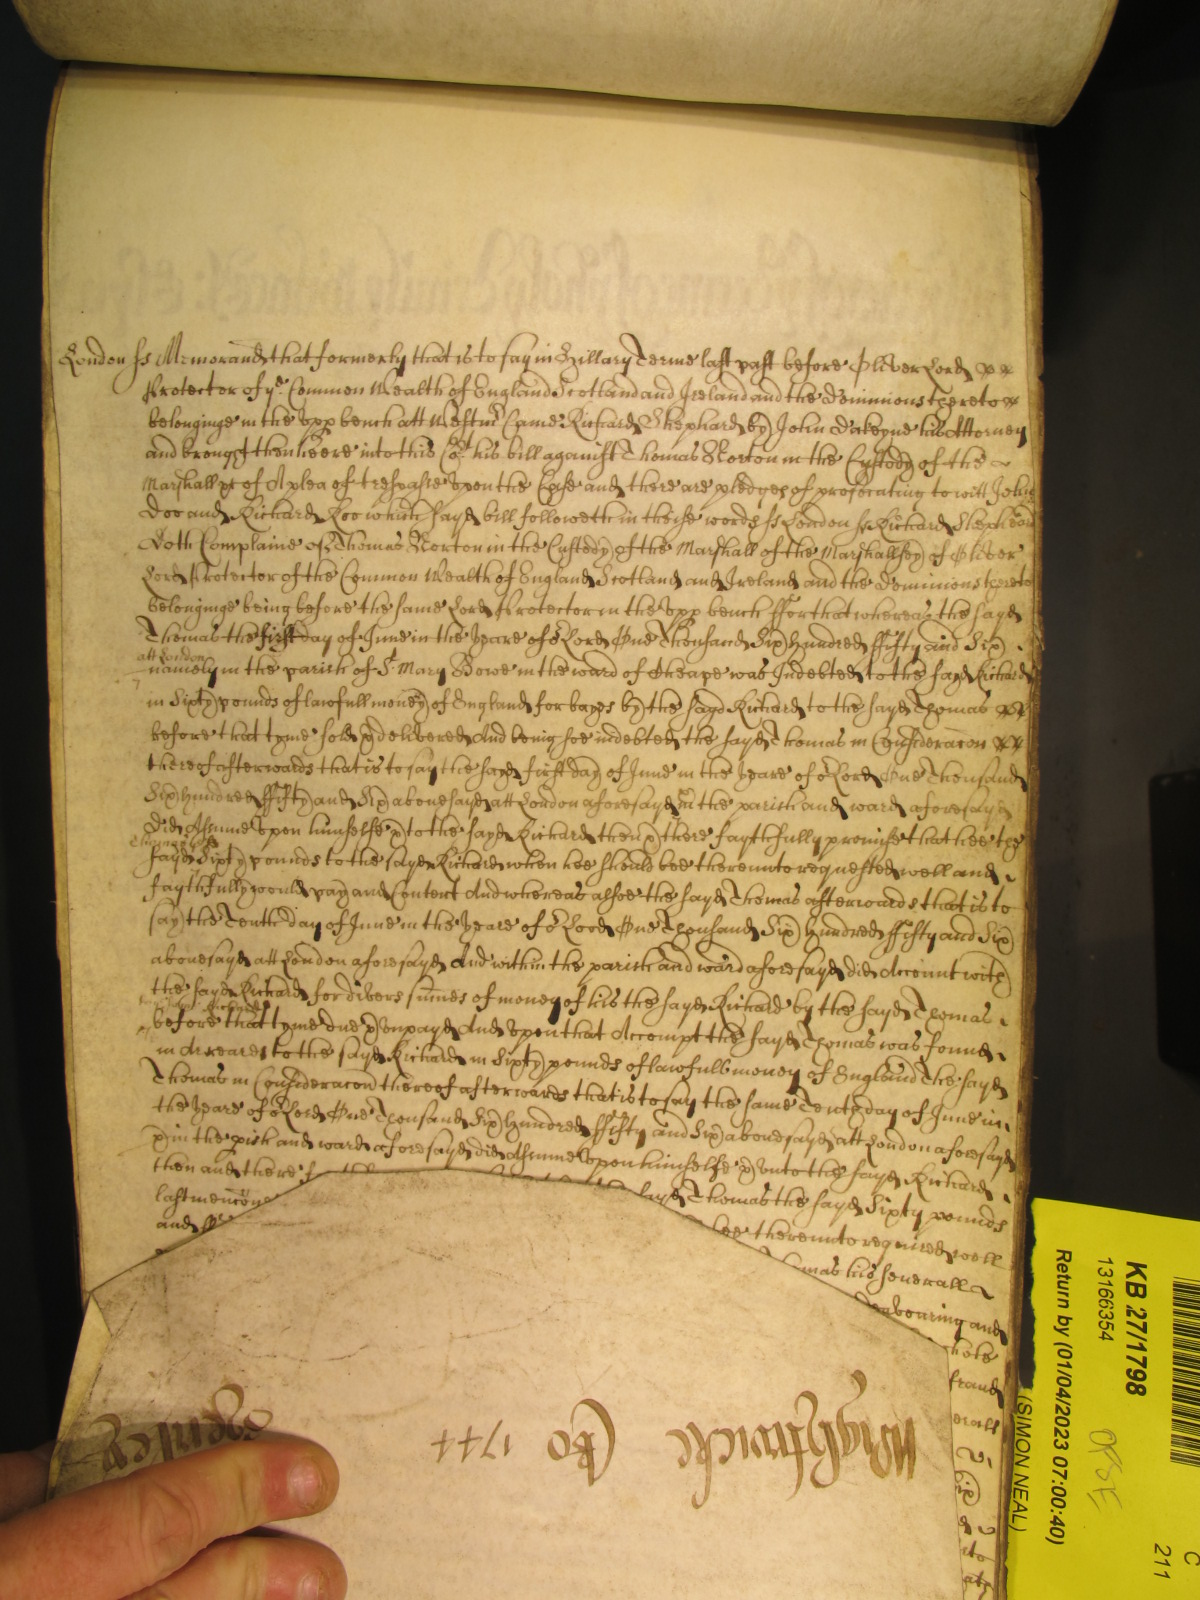 London ss Memorand that formerly that is to say in Hillary Terme last past before Oliver Lord
Protector of ye Common Wealth of England Scotland and Ireland and the Dominions thereto
belonginge in the upp bench att Westmr Came Richard Shephard by John Dakeyne his Attorney
and brought then heere into this Cort his bill against Thomas Norton in the Custody of the
Marshall &c of A plea of trespasse upon the Case and there are pledges of prosecuting to witt John
Doo and Richard Roo which sayd bill followeth in theise words ss London ss Richard Shephard
Doth Complaine of Thomas Norton in the Custody of the Marshall of the Marshallsey of Oliver
Lord Protector of the Common Wealth of England Scotland and Ireland and the Dominions thereto
belonginge being before the same Lord Protector in the upp bench ffor that whereas the sayd
Thomas the first day of June in the yeare of or Lord One Thousand Six hundred ffifty and Six
att London
namely in the parish of St Mary Bowe in the ward of Cheape was Indebted to the sayd Richard
in Sixty pounds of lawfull money of England for bayes by the sayd Richard to the sayd Thomas
before that tyme sold & delivered And being soe indebted the sayd Thomas in Consideracon
thereof afterwards that is to say the sayd first day of June in the yeare of or Lord One Thousand
Six hundred ffifty and Six abovesayd att London aforesayd in the parish and ward aforesayd
did Assume upon himselfe & to the sayd Richard then & there faythfully promise that hee the
sayd Sixty pounds to the sayd Richard when hee should bee thereunto requested well and
faythfully would pay and Content And whereas alsoe the sayd Thomas afterwards that is to
say the Tenth day of June in the yeare of or Lord One Thousand Six hundred ffifty and Six
abovesayd att London aforesayd And within the parish and ward aforesayd did Account with
the sayd Richard for divers summes of money of his the sayd Richard by the sayd Thomas
before that tyme due & unpayd And upon that Accompt the sayd Thomas was found
in Arreares to the sayd Richard in Sixty pounds of lawfull money of England The sayd
Thomas in Consideracon thereof afterwards that is to say the same Tenth day of June in
the yeare of or Lord One Thousand Six hundred ffifty and Six abovesayd att London aforesayd
& in the pish and ward aforesayd did Assume upon himselfe & unto the sayd Richard
then and there
sayd Thomas the sayd Sixty pounds
last menconed
bee thereunto required well
and
his severall
and
Wightwicke Cto 1744
KB 27/1798
13166354
Return by (01/04/2023 07:00:40)
(SIMON NEAL)
C
211